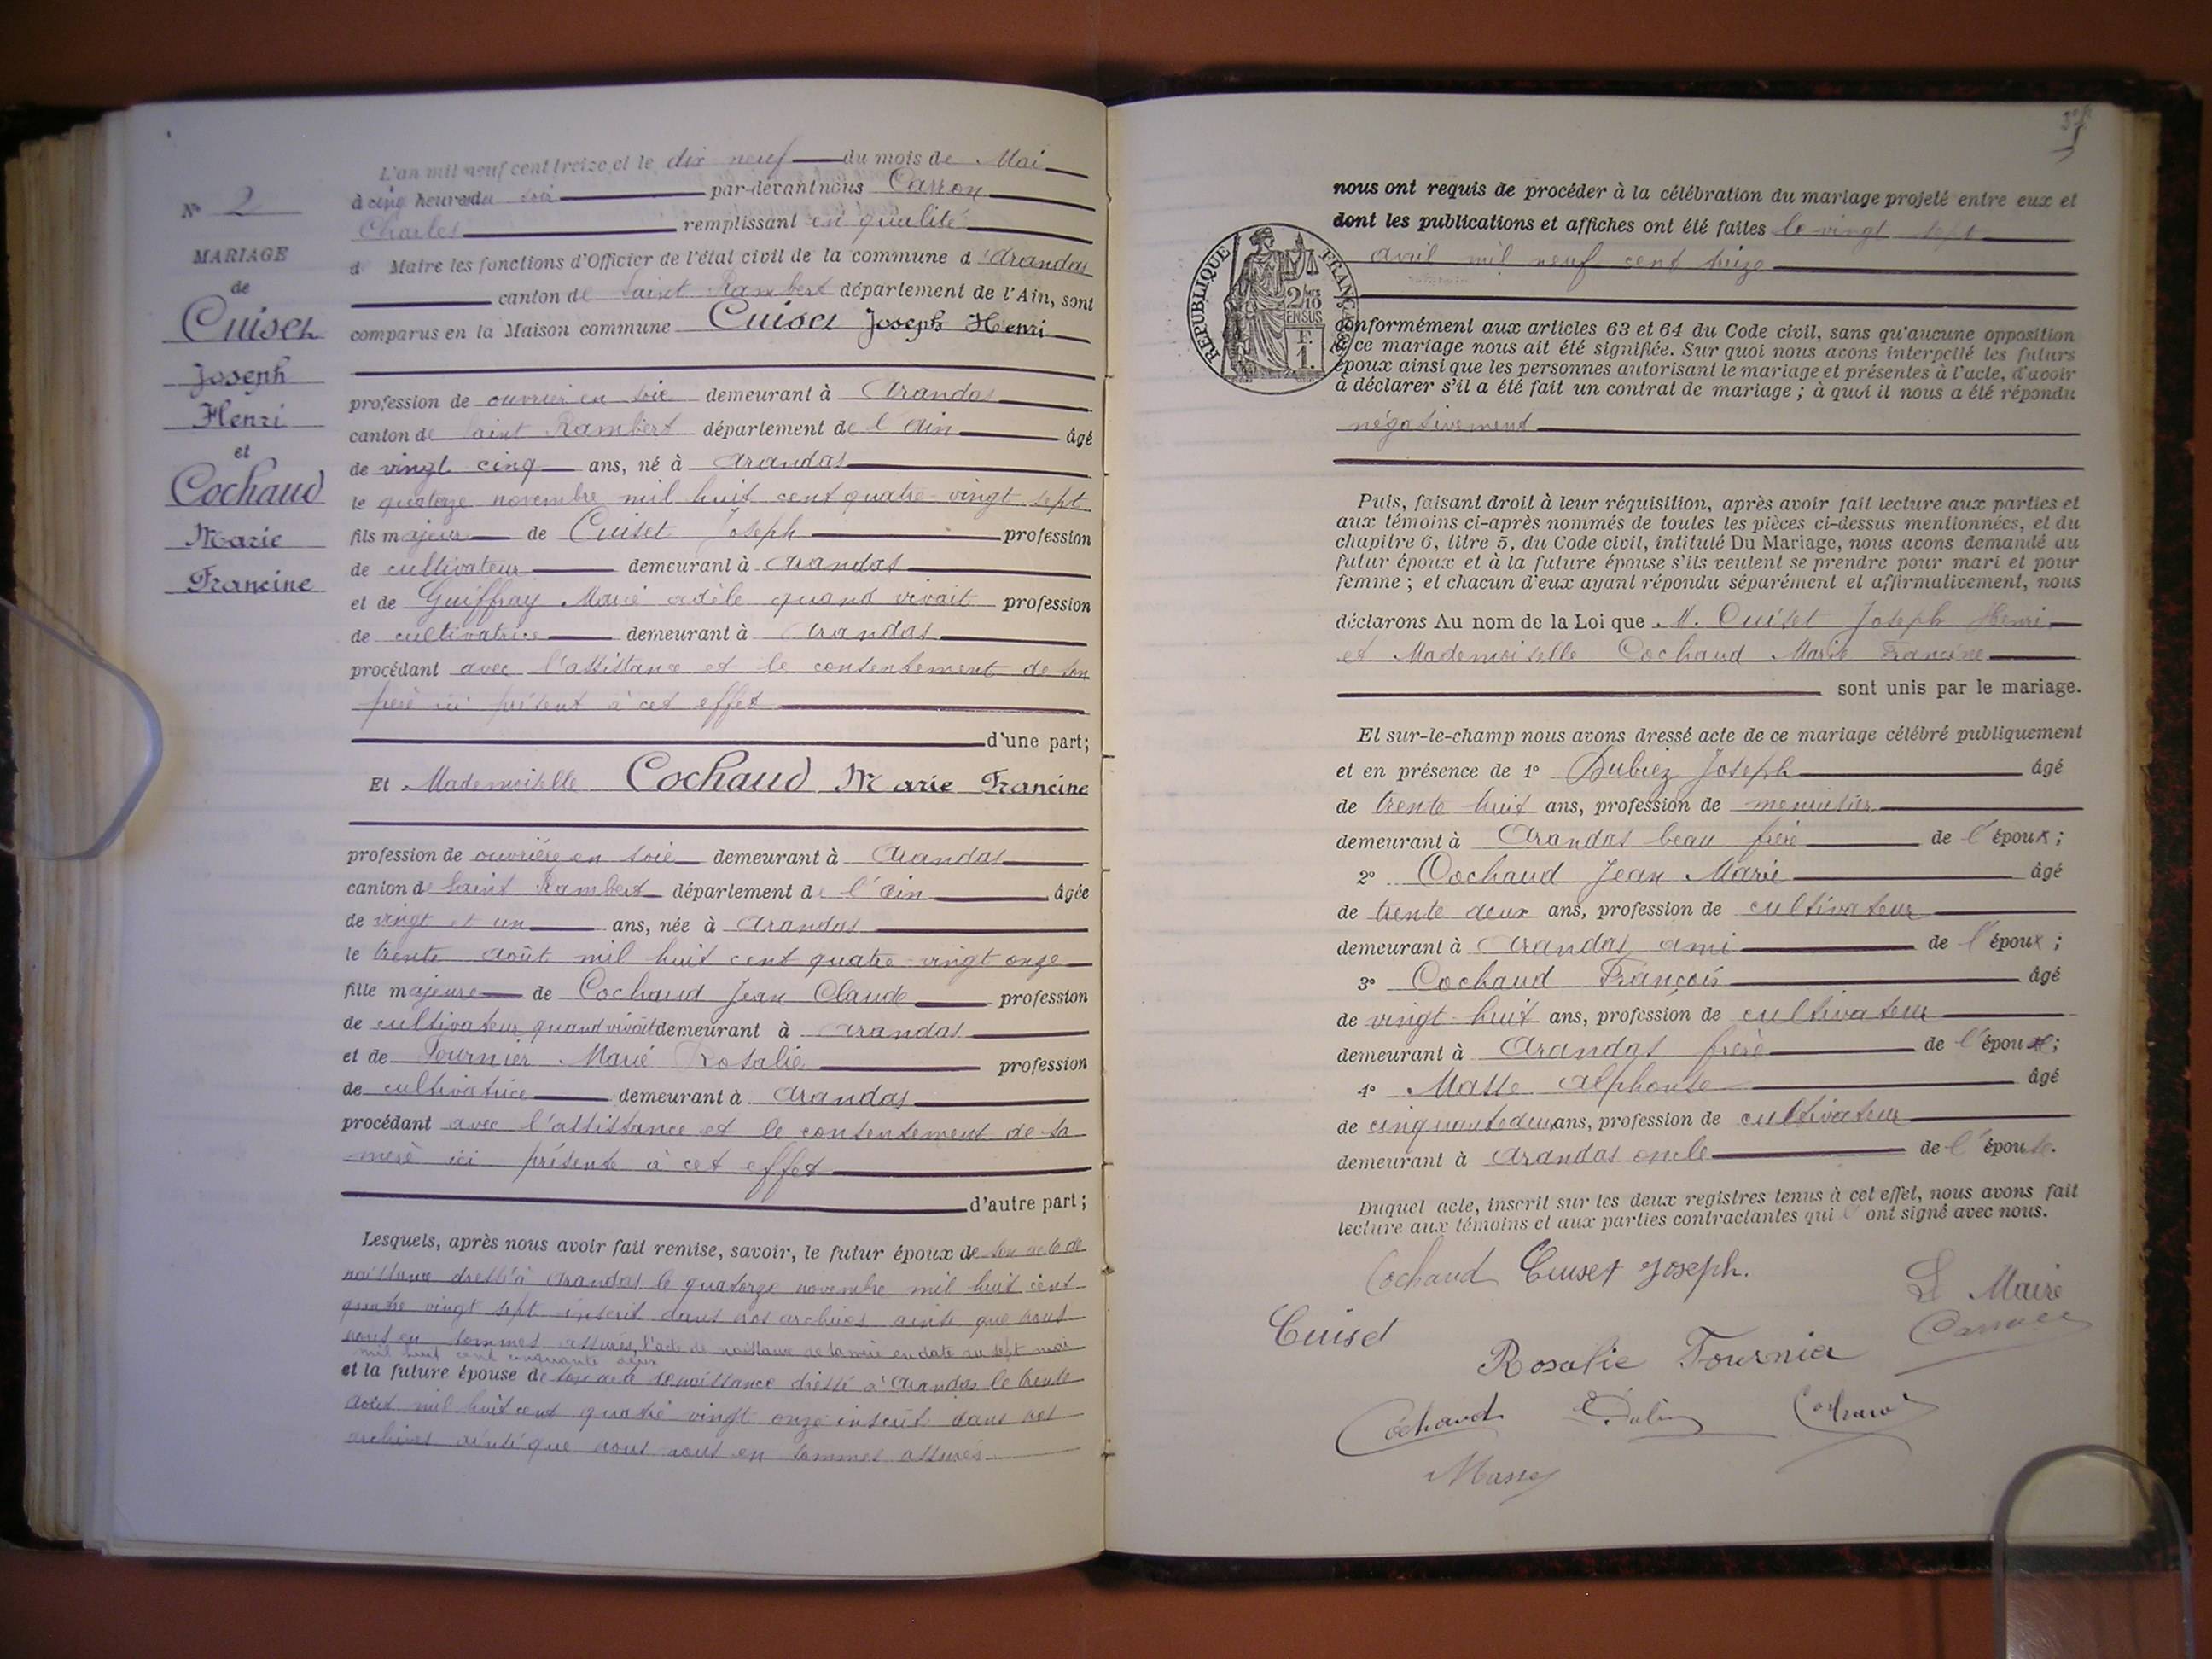 N° 2
MARIAGE
de
Cuiset
Joseph
Henri
et
Cochaud
Marie
Francine
L'an mil neuf cent treize, et le dix neuf du mois de Mai
à cinq heures du soir par-devant nous Carron
Charles remplissant en qualité
d Maire les fonctions d'Officier de l'état civil de la commune d'Arandas
canton de Saint Rambert département de l'Ain, sont
comparus en la Maison commune Cuiset Joseph Henri
profession de ouvrier en soie demeurant à Arandas
canton de Saint Rambert département de l'Ain âgé
de vingt cinq ans, né à Arandas
le quatorze novembre mil huit cent quatre-vingt sept
fils majeur de Cuiset Joseph profession
de cultivateur demeurant à Arandas
et de Guiffray Marie adèle quand vivait profession
de cultivatrice demeurant à Arandas
procédant avec l'assistance et le consentement de son
père ici présent à cet effet
d'une part;
Et Mademoiselle Cochaud Marie Francine
profession de ouvrière en soie demeurant à Arandas
canton de Saint Rambert département de l'Ain âgée
de vingt et un ans, née à Arandas
le trente août mil huit cent quatre-vingt onze
fille majeure de Cochaud Jean Claude profession
de cultivateur quand vivait demeurant à Arandas
et de Fournier Marie Rosalie profession
de cultivatrice demeurant à Arandas
procédant avec l'assistance et le consentement de sa
mère ici présente à cet effet
d'autre part;
Lesquels, après nous avoir fait remise, savoir, le futur époux de son acte de
naissance dressé à Arandas le quatorze novembre mil huit cent
quatre vingt sept inscrit dans nos archives ainsi que nous
nous en sommes assurés, l'acte de naissance de sa mère en date du sept mai
mil huit cent cinquante deux
et la future épouse de son acte de naissance dressé à Arandas le trente
août mil huit cent quatre vingt onze inscrit dans nos
archives ainsi que nous nous en sommes assurés
37
nous ont requis de procéder à la célébration du mariage projeté entre eux et
dont les publications et affiches ont été faites le vingt sept
avril mil neuf cent treize
RÉPUBLIQUE FRANÇAISE
2/10
EN SUS
F.
1.
conformément aux articles 63 et 64 du Code civil, sans qu'aucune opposition
à ce mariage nous ait été signifiée. Sur quoi nous avons interpellé les futurs
époux ainsi que les personnes autorisant le mariage et présentes à l'acte, d'avoir
à déclarer s'il a été fait un contrat de mariage ; à quoi il nous a été répondu
négativement
Puis, faisant droit à leur réquisition, après avoir fait lecture aux parties et
aux témoins ci-après nommés de toutes les pièces ci-dessus mentionnées, et du
chapitre 6, titre 5, du Code civil, intitulé Du Mariage, nous avons demandé au
futur époux et à la future épouse s'ils veulent se prendre pour mari et pour
femme ; et chacun d'eux ayant répondu séparément et affirmativement, nous
déclarons Au nom de la Loi que M. Cuiset Joseph Henri
et Mademoiselle Cochaud Marie Francine
sont unis par le mariage.
Et sur-le-champ nous avons dressé acte de ce mariage célébré publiquement
et en présence de 1° Dubiez Joseph âgé
de trente huit ans, profession de menuisier
demeurant à Arandas beau frère de l'époux;
2° Cochaud Jean Marie âgé
de trente deux ans, profession de cultivateur
demeurant à Arandas ami de l'époux;
3° Cochaud François âgé
de vingt-huit ans, profession de cultivateur
demeurant à Arandas frère de l'épouse;
4° Masse Alphonse âgé
de cinquante deux ans, profession de cultivateur
demeurant à Arandas oncle de l'épouse.
Duquel acte, inscrit sur les deux registres tenus à cet effet, nous avons fait
lecture aux témoins et aux parties contractantes qui l'ont signé avec nous.
Cochaud Cuiset Joseph.
Le Maire
Cuiset
Carron
Rosalie Fournier
Cochaud
Cochaud
Masse